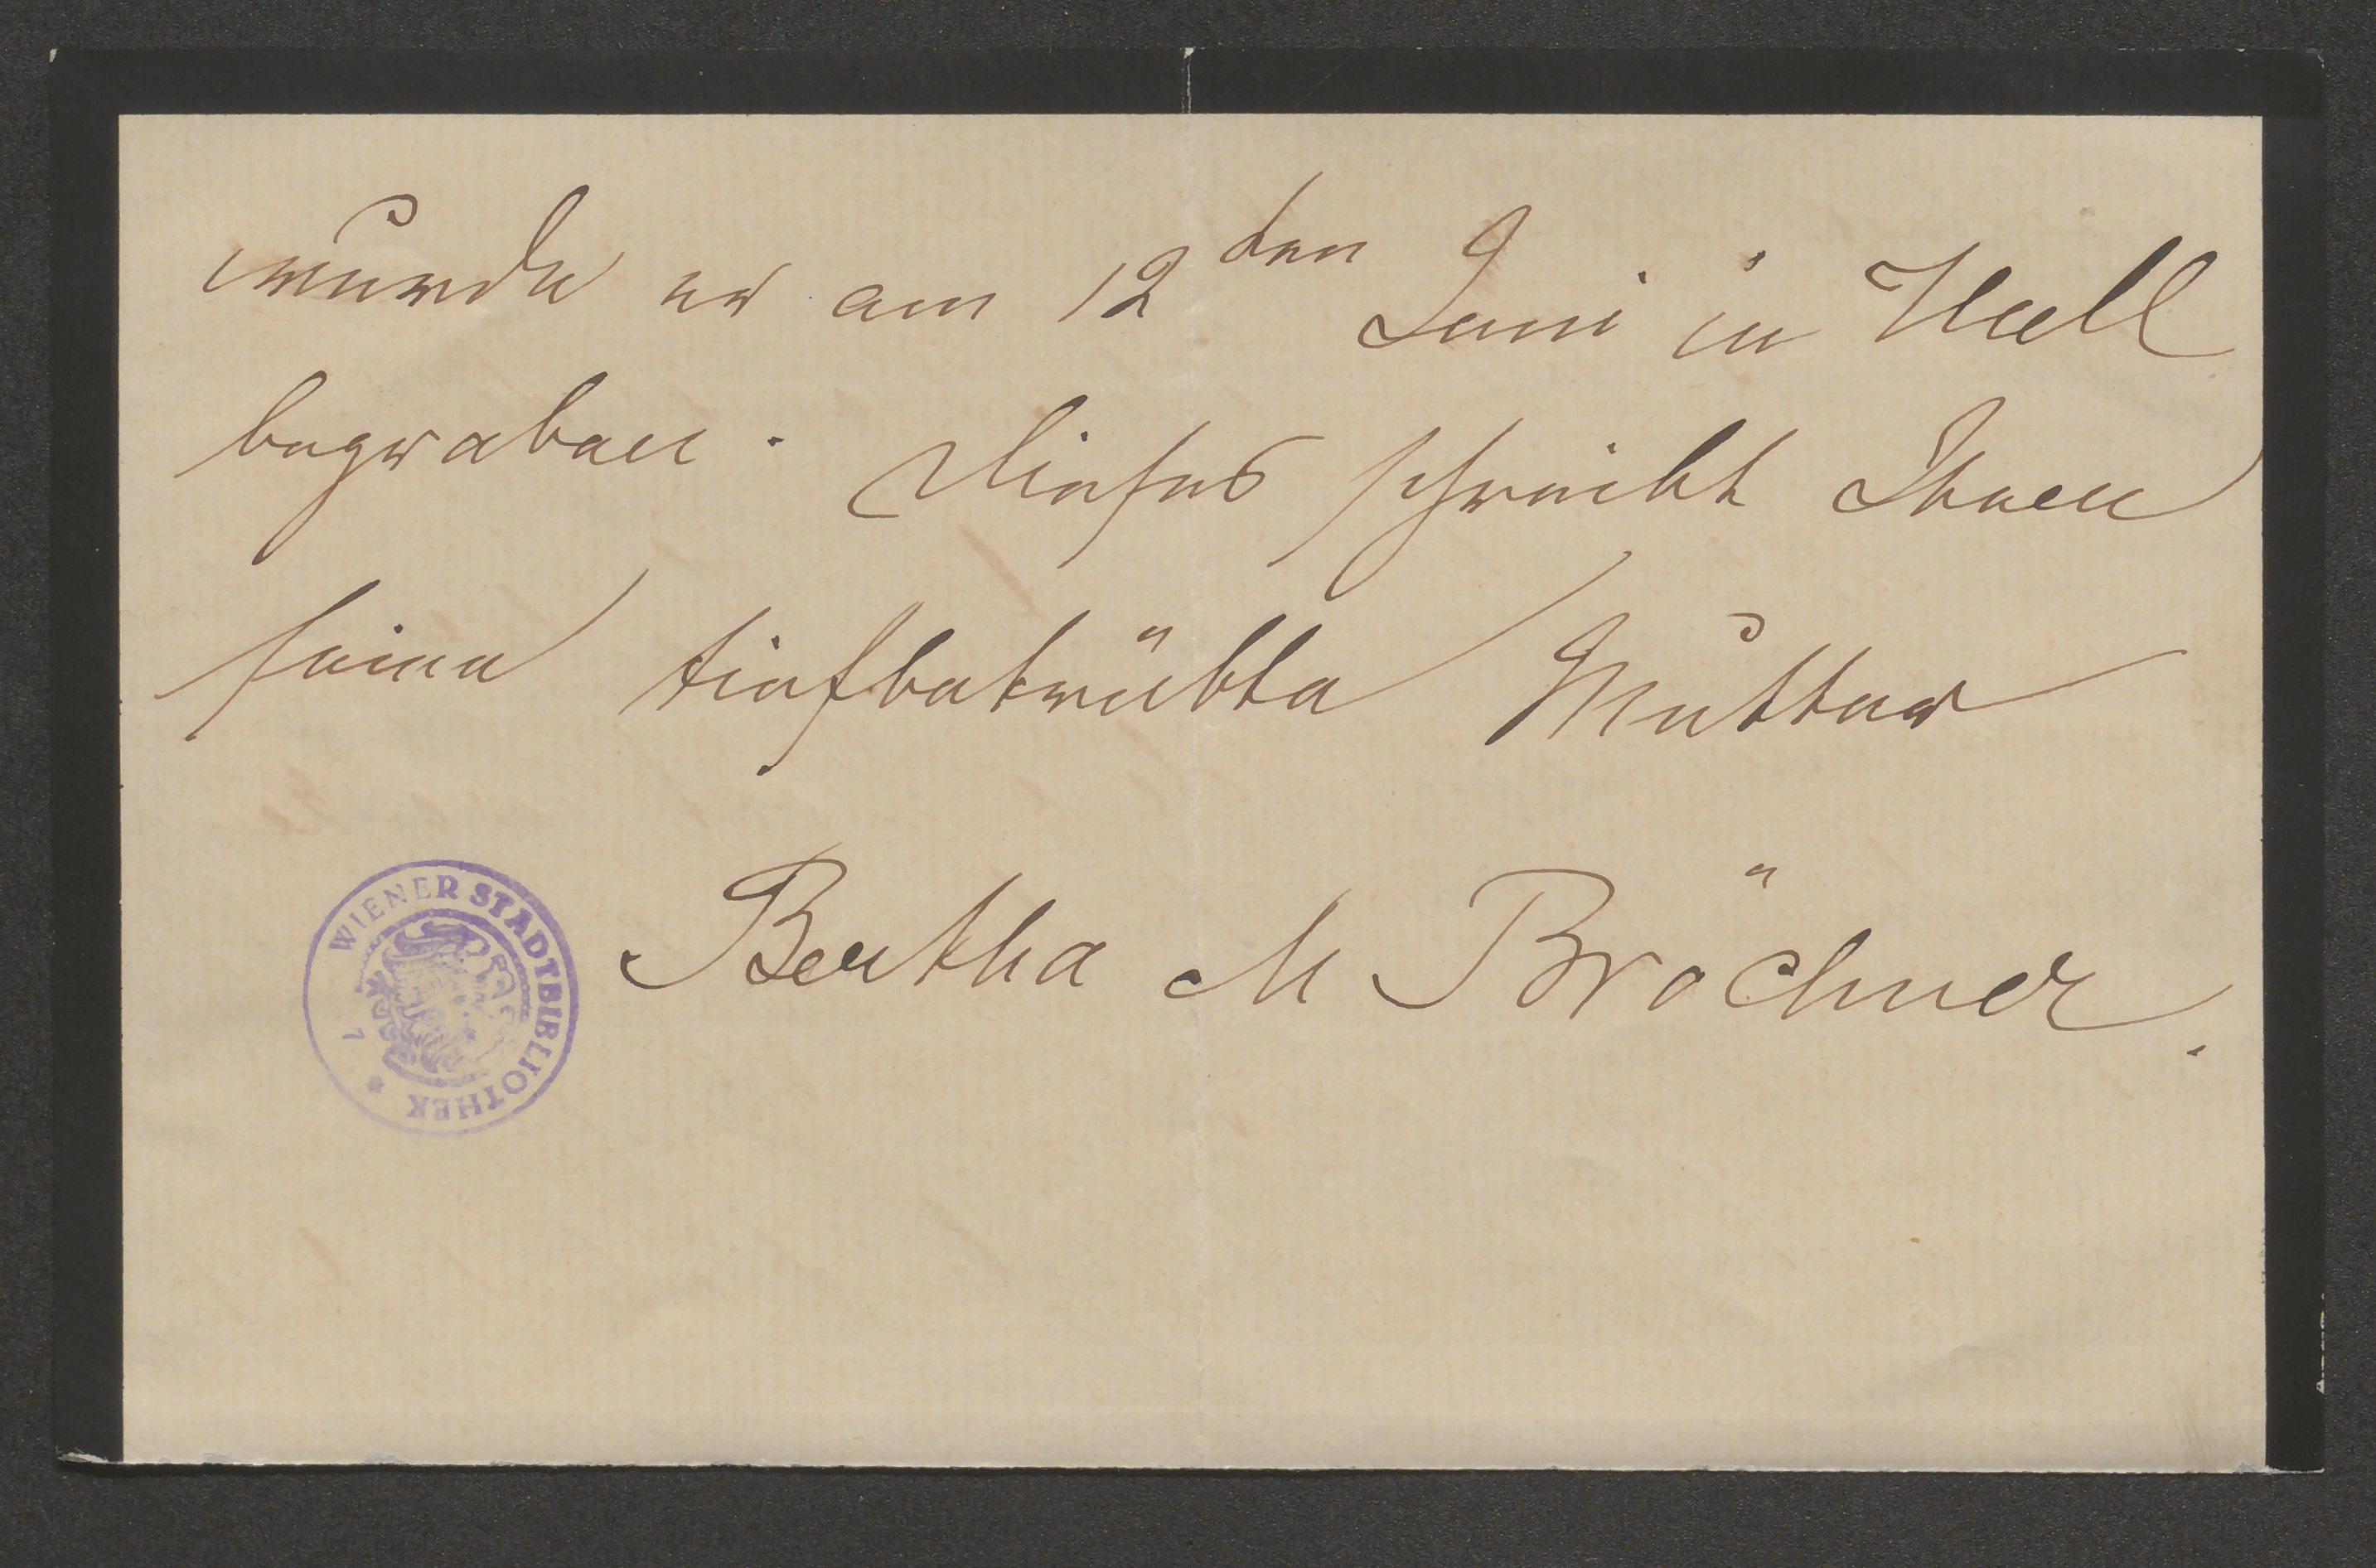 wurde er am 12ten Juni in Hall
begraben. Dieses schreibt Ihnen
seine tiefbetrübte Mutter
Bertha M Bröchner.
WIENER STADTBIBLIOTHEK *